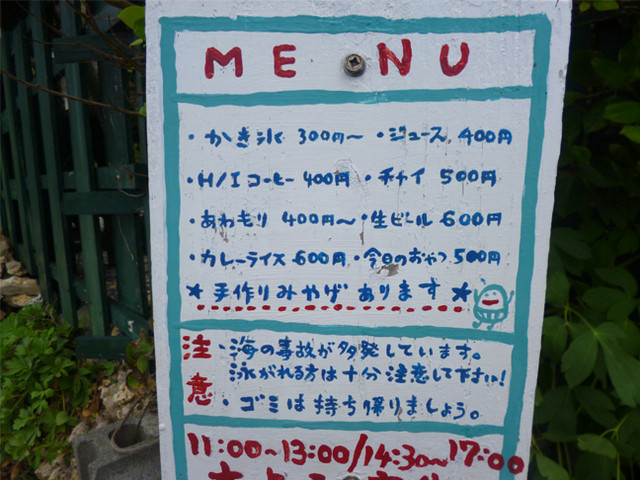 MENU
・かき氷 300円〜 ・ジュース 400円
・H/I コーヒー 400円 ・チャイ 500円
・あわもり 400円〜 ・生ビール 600円
・カレーライス 600円 ・今日のおやつ 500円
★手作りみやげあります★
注意
・海の事故が多発しています。
泳がれる方は十分注意して下さい!
・ゴミは持ち帰りましょう。
11:00~13:00/14:30~17:00